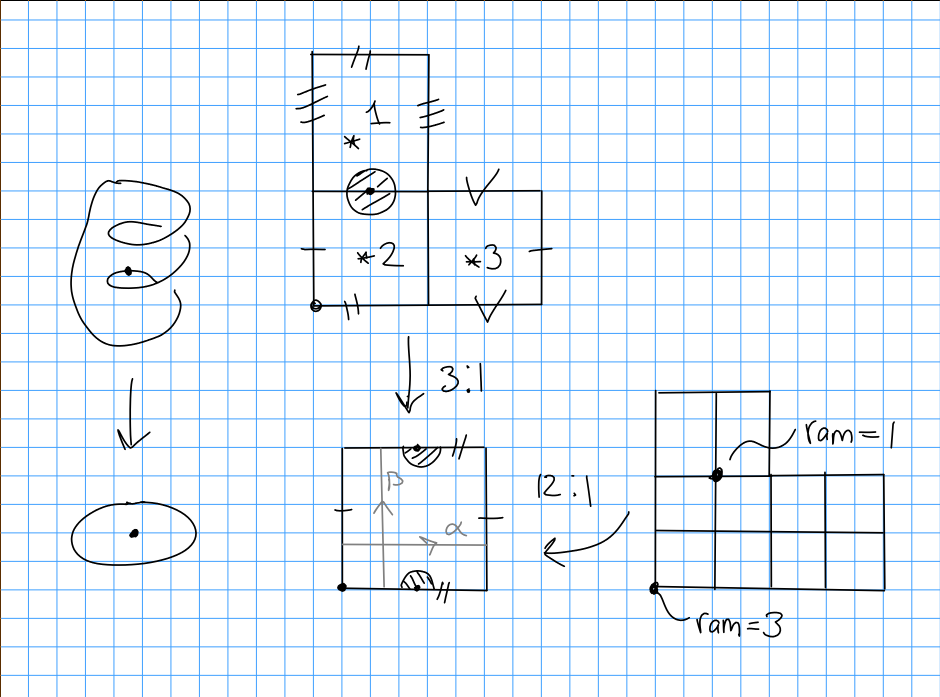 1
*
*2
*3
3:1
β
α
12:1
ram=1
ram=3